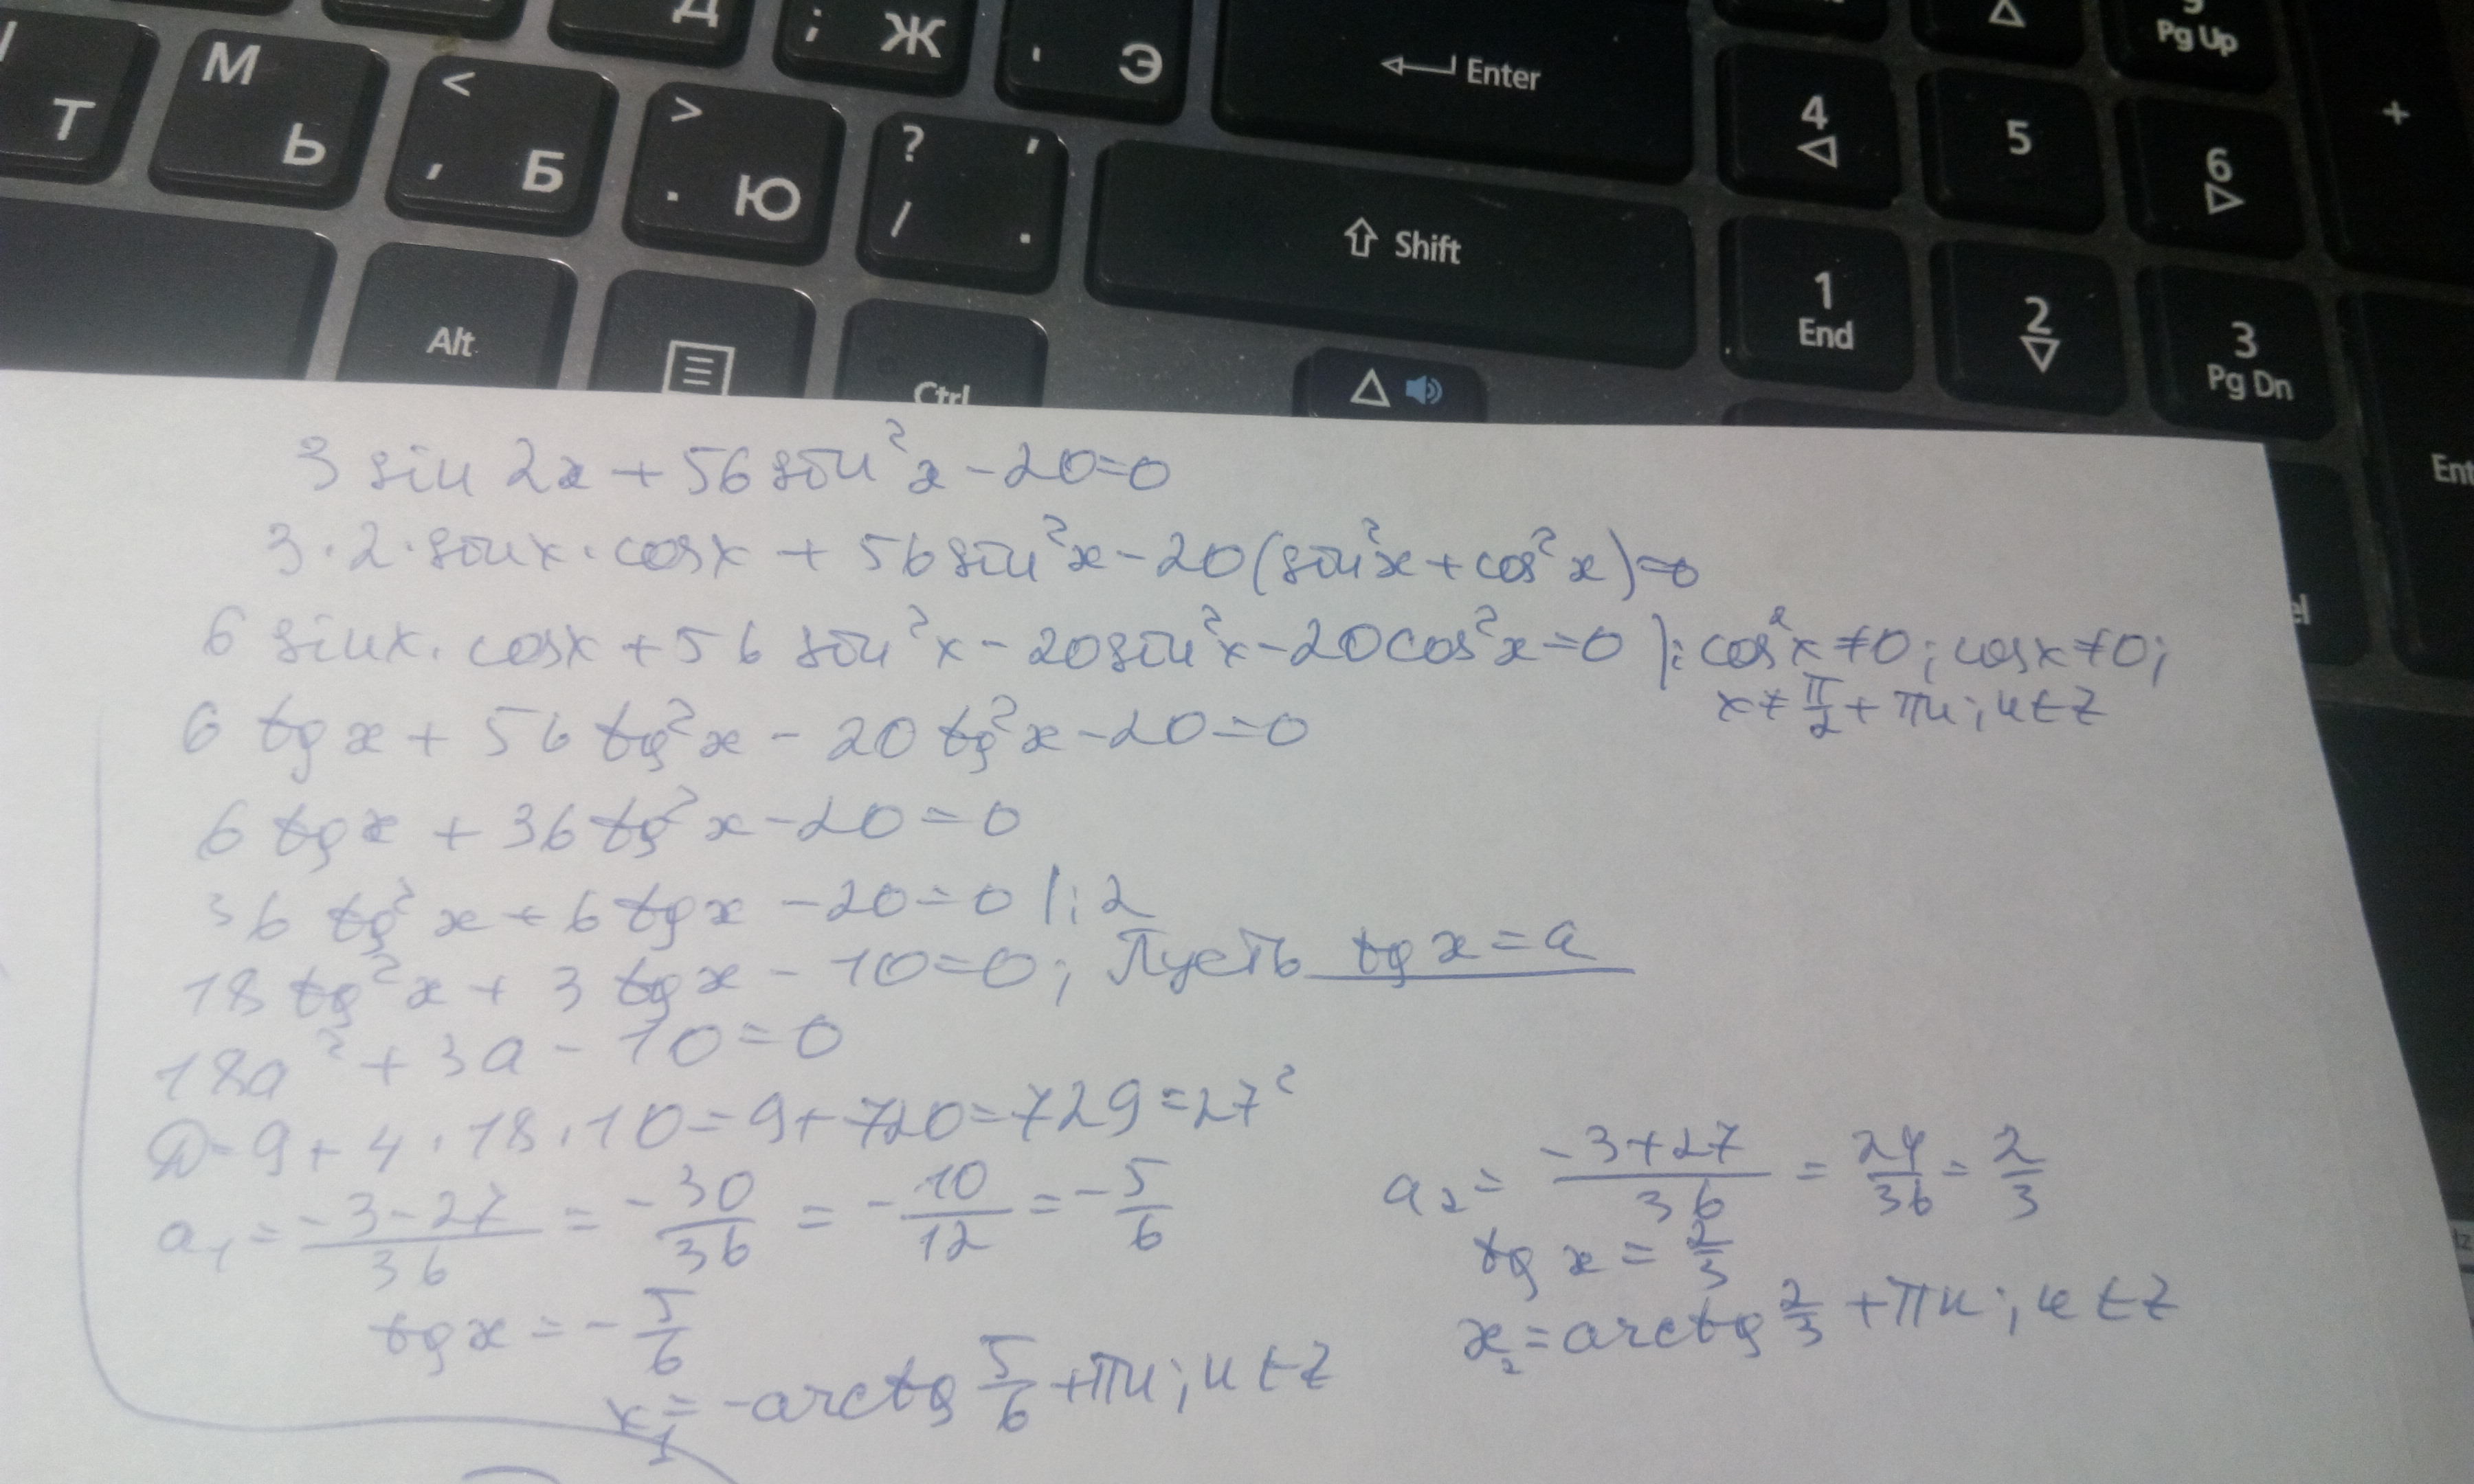 Д
; Ж
' Э
Enter
9
Pg Up
Т
М Ь
< , Б
> . Ю
? , / .
Shift
4
5
6
+
Alt
Ctrl
1
End
2
3
Pg Dn
Ent
3 sin 2x + 56 sin²x - 20 = 0
3 · 2 · sinx · cosx + 56 sin²x - 20 (sin²x + cos²x) = 0
6 sinx · cosx + 56 sin²x - 20 sin²x - 20 cos²x = 0 |: cos²x ≠ 0; cosx ≠ 0;
x ≠ π/2 + πn; n ∈ Z
6 tg x + 56 tg²x - 20 tg²x - 20 = 0
6 tgx + 36 tg²x - 20 = 0
36 tg²x + 6 tgx - 20 = 0 |: 2
18 tg²x + 3 tgx - 10 = 0; Пусть tg x = a
18a² + 3a - 10 = 0
D = 9 + 4 · 18 · 10 = 9 + 720 = 729 = 27²
a₁ = (-3 - 27)/36 = -30/36 = -10/12 = -5/6
tgx = -5/6
x₁ = -arctg 5/6 + πn; n ∈ Z
a₂ = (-3 + 27)/36 = 24/36 = 2/3
tg x = 2/3
x₂ = arctg 2/3 + πn; n ∈ Z